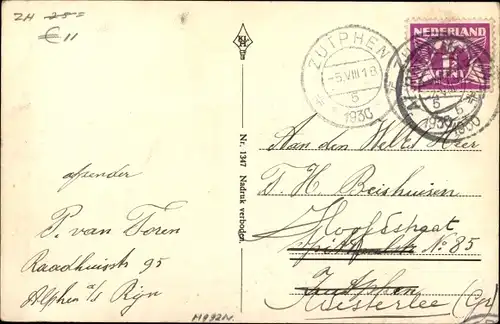 ZH 25=
€ 11
ZUTPHEN
-5.VIII 18
5
1930
NEDERLAND
1
CENT
1930
Nr. 1347 Nadruk verboden.
Aan den Wel Ed Heer
J. H. Beishuisen
Hoofdstraat
No. 85
Zutphen
(Gr)
afzender
P. van Toren
Raadhuisstr 95
Alphen a/s Rijn
M992N.